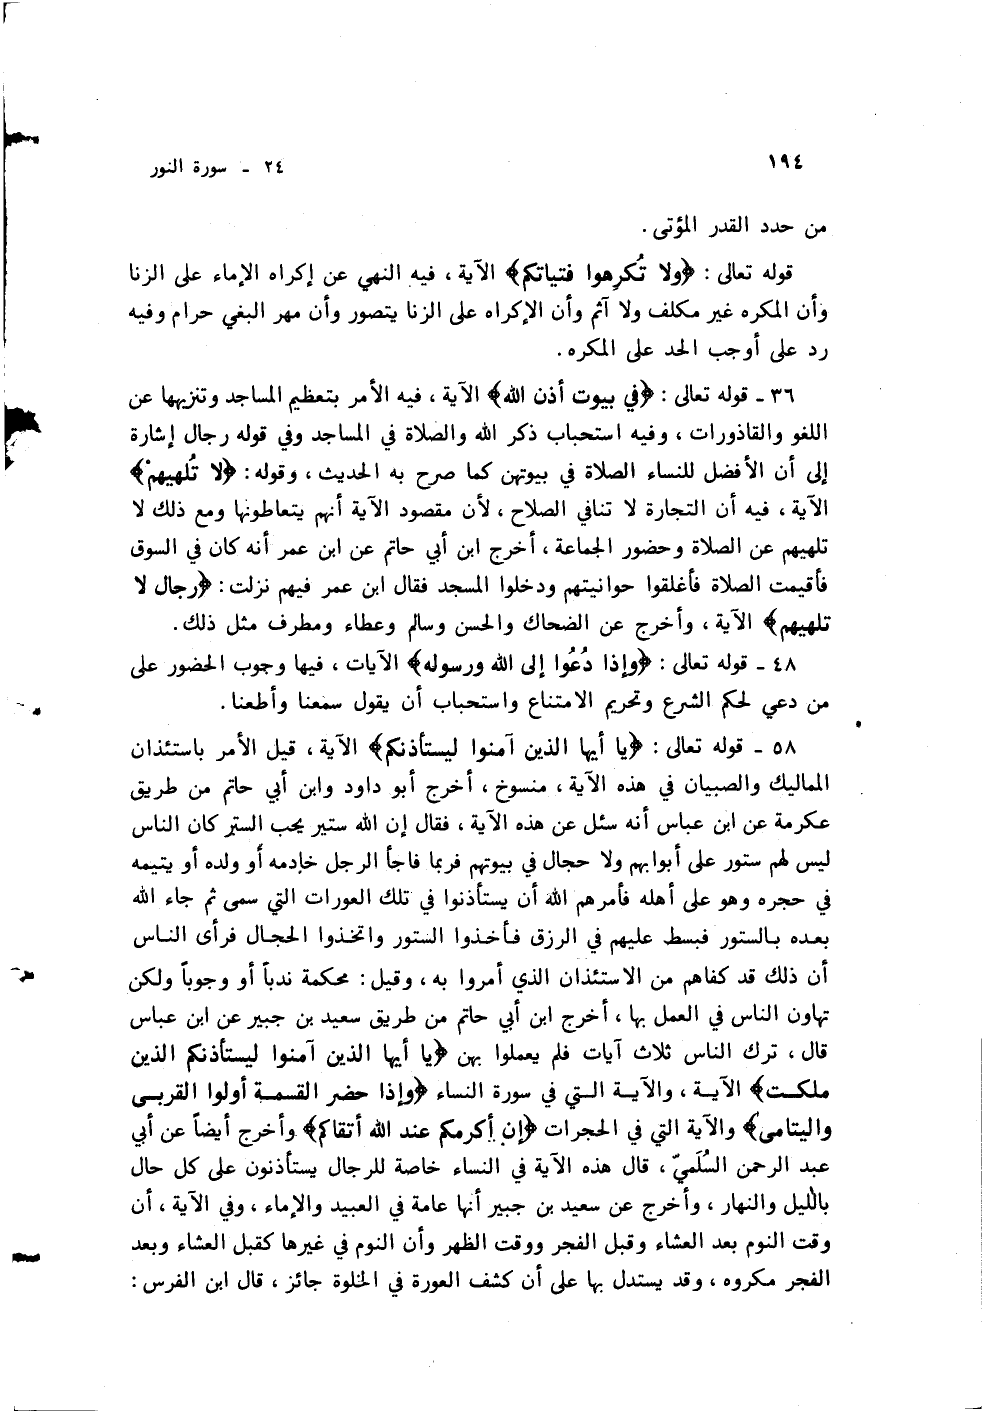 ١٩٤
٢٤ - سورة النور
من حدد القدر المؤتى .
قوله تعالى : ﴿ولا تُكرِهوا فتياتكم﴾ الآية ، فيه النهي عن إكراه الإماء على الزنا
وأن المكره غير مكلف ولا آثم وأن الإكراه على الزنا يتصور وأن مهر البغي حرام وفيه
رد على أوجب الحد على المكره .
٣٦ - قوله تعالى : ﴿في بيوت أذن الله﴾ الآية ، فيه الأمر بتعظيم المساجد وتنزيهها عن
اللغو والقاذورات ، وفيه استحباب ذكر الله والصلاة في المساجد وفي قوله رجال إشارة
إلى أن الأفضل للنساء الصلاة في بيوتهن كما صرح به الحديث ، وقوله : ﴿لا تُلهيهمْ﴾
الآية ، فيه أن التجارة لا تنافي الصلاح ، لأن مقصود الآية أنهم يتعاطونها ومع ذلك لا
تلهيهم عن الصلاة وحضور الجماعة ، أخرج ابن أبي حاتم عن ابن عمر أنه كان في السوق
فأقيمت الصلاة فأغلقوا حوانيتهم ودخلوا المسجد فقال ابن عمر فيهم نزلت : ﴿رجال لا
تلهيهم﴾ الآية ، وأخرج عن الضحاك والحسن وسالم وعطاء ومطرف مثل ذلك .
٤٨ - قوله تعالى : ﴿وإذا دُعُوا إلى الله ورسوله﴾ الآيات ، فيها وجوب الحضور على
من دعي لحكم الشرع وتحريم الامتناع واستحباب أن يقول سمعنا وأطعنا .
٥٨ - قوله تعالى : ﴿يا أيها الذين آمنوا ليستأذنكم﴾ الآية ، قيل الأمر باستئذان
المماليك والصبيان في هذه الآية ، منسوخ ، أخرج أبو داود وابن أبي حاتم من طريق
عكرمة عن ابن عباس أنه سئل عن هذه الآية ، فقال إن الله ستير يحب الستر كان الناس
ليس لهم ستور على أبوابهم ولا حجال في بيوتهم فربما فاجأ الرجل خادمه أو ولده أو يتيمه
في حجره وهو على أهله فأمرهم الله أن يستأذنوا في تلك العورات التي سمى ثم جاء الله
بعده بالستور فبسط عليهم في الرزق فأخذوا الستور واتخذوا الحجال فرأى الناس
أن ذلك قد كفاهم من الاستئذان الذي أمروا به ، وقيل : محكمة ندباً أو وجوباً ولكن
تهاون الناس في العمل بها ، أخرج ابن أبي حاتم من طريق سعيد بن جبير عن ابن عباس
قال ، ترك الناس ثلاث آيات فلم يعملوا بهن ﴿يا أيها الذين آمنوا ليستأذنكم الذين
ملكت﴾ الآية ، والآية التي في سورة النساء ﴿وإذا حضر القسمة أولوا القربى
واليتامى﴾ والآية التي في الحجرات ﴿إن أكرمكم عند الله أتقاكم﴾ وأخرج أيضاً عن أبي
عبد الرحمن السُلَميّ ، قال هذه الآية في النساء خاصة للرجال يستأذنون على كل حال
بالليل والنهار ، وأخرج عن سعيد بن جبير أنها عامة في العبيد والإماء ، وفي الآية ، أن
وقت النوم بعد العشاء وقبل الفجر ووقت الظهر وأن النوم في غيرها كقبل العشاء وبعد
الفجر مكروه ، وقد يستدل بها على أن كشف العورة في الخلوة جائز ، قال ابن الفرس :